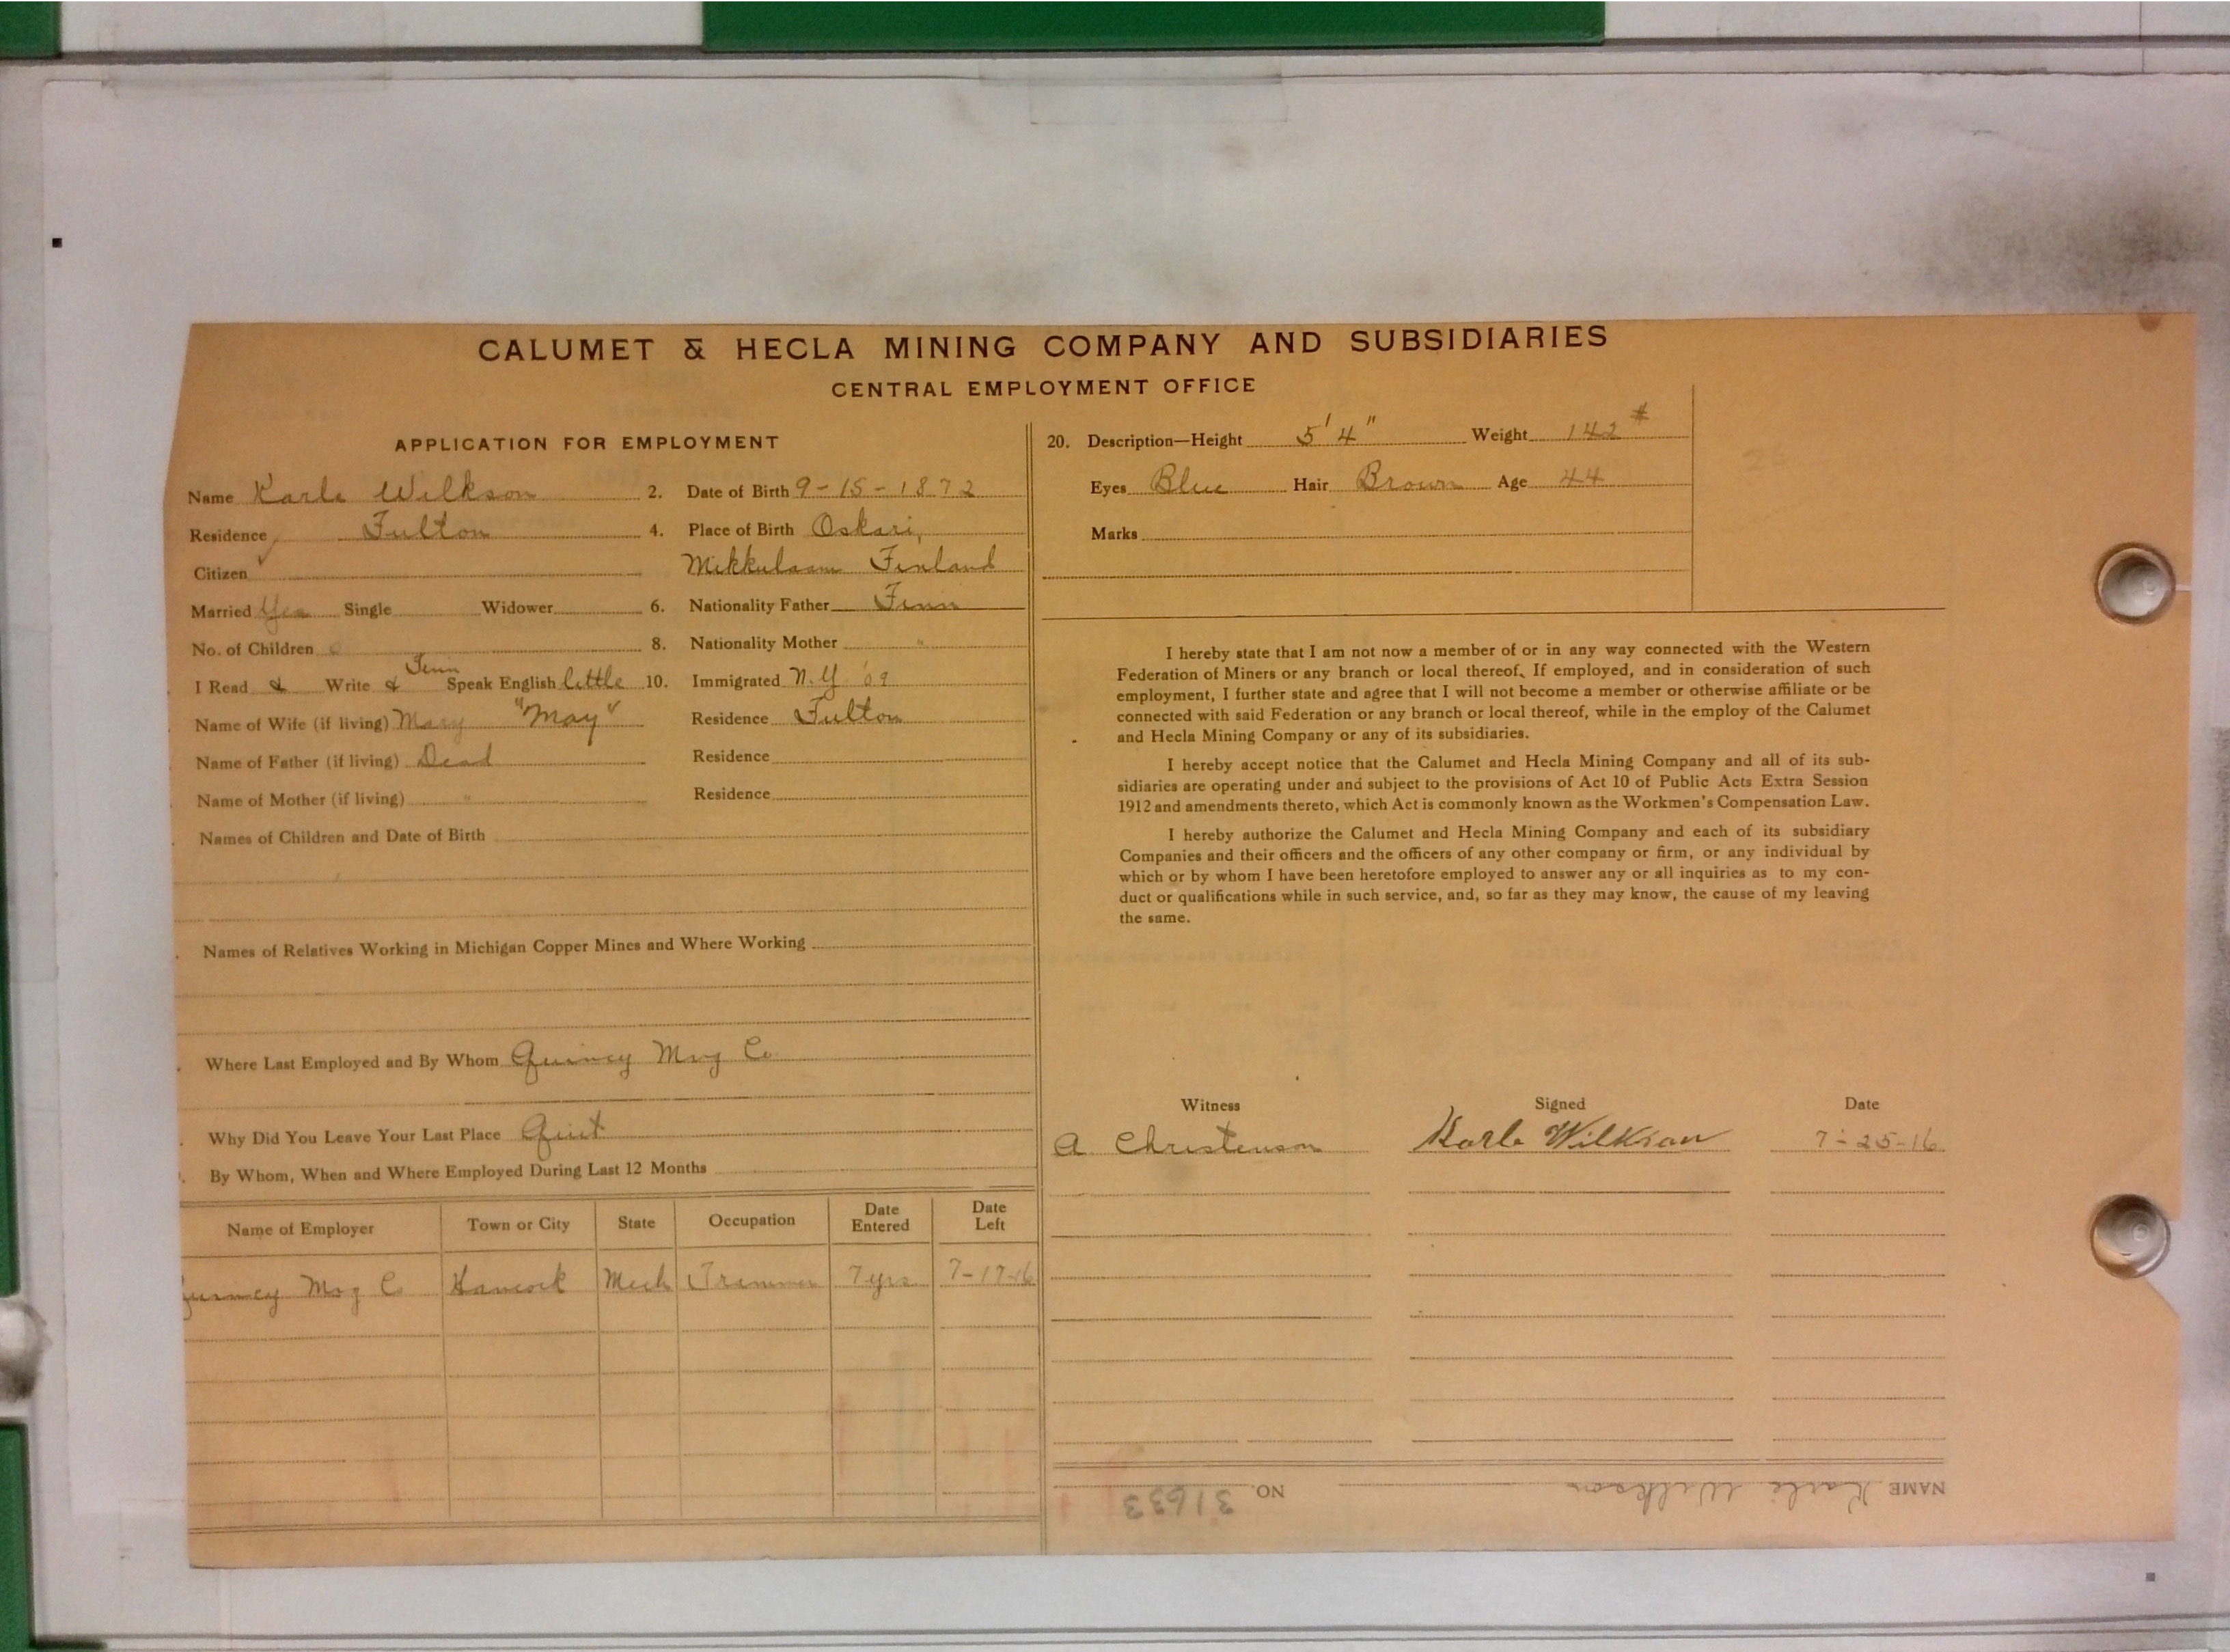 CALUMET & HECLA MINING COMPANY AND SUBSIDIARIES
CENTRAL EMPLOYMENT OFFICE
APPLICATION FOR EMPLOYMENT
Name Karle Wilkson 2. Date of Birth 9-15-1872
Residence Fulton 4. Place of Birth Oskari,
Citizen Mikkulaam Finland
Married Yes Single Widower 6. Nationality Father Finn
No. of Children 0 8. Nationality Mother "
Finn
I Read & Write & Speak English little 10. Immigrated N.Y '09
Name of Wife (if living) Mary "May" Residence Fulton
Name of Father (if living) Dead Residence
Name of Mother (if living) " Residence
Names of Children and Date of Birth
Names of Relatives Working in Michigan Copper Mines and Where Working
Where Last Employed and By Whom Quincy Mng Co
Why Did You Leave Your Last Place Quit
By Whom, When and Where Employed During Last 12 Months
Name of Employer Town or City State Occupation Date Entered Date Left
Quincy Mng Co Hancock Mich Trammer 7 yrs 7-17-16
20. Description—Height 5'4" Weight 142#
Eyes Blue Hair Brown Age 44
Marks
I hereby state that I am not now a member of or in any way connected with the Western
Federation of Miners or any branch or local thereof. If employed, and in consideration of such
employment, I further state and agree that I will not become a member or otherwise affiliate or be
connected with said Federation or any branch or local thereof, while in the employ of the Calumet
and Hecla Mining Company or any of its subsidiaries.
I hereby accept notice that the Calumet and Hecla Mining Company and all of its sub-
sidiaries are operating under and subject to the provisions of Act 10 of Public Acts Extra Session
1912 and amendments thereto, which Act is commonly known as the Workmen's Compensation Law.
I hereby authorize the Calumet and Hecla Mining Company and each of its subsidiary
Companies and their officers and the officers of any other company or firm, or any individual by
which or by whom I have been heretofore employed to answer any or all inquiries as to my con-
duct or qualifications while in such service, and, so far as they may know, the cause of my leaving
the same.
Witness Signed Date
A Christenson Karle Wilkson 7-25-16
NAME Karle Wilkson NO. 31633